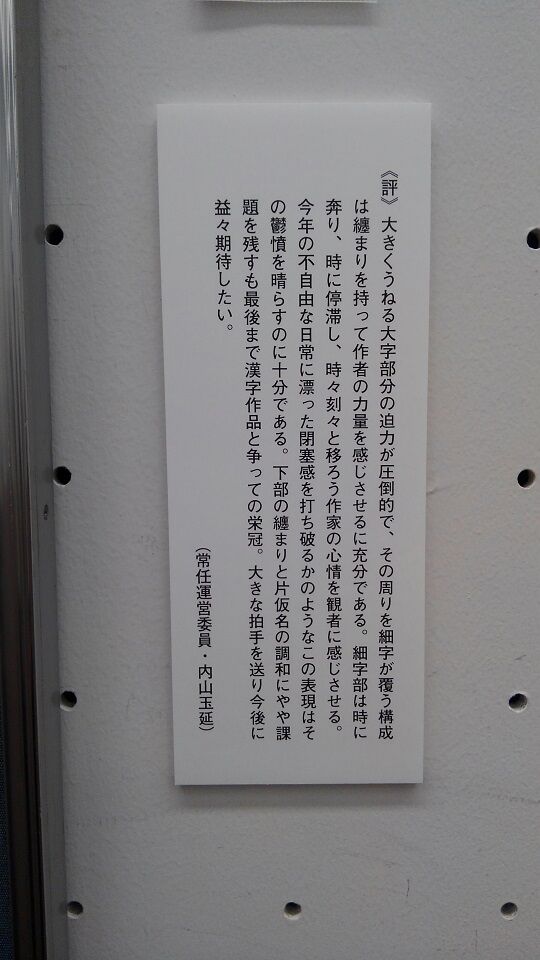 《評》大きくうねる大字部分の迫力が圧倒的で、その周りを細字が覆う構成
は纏まりを持って作者の力量を感じさせるに充分である。細字部は時に
奔り、時に停滞し、時々刻々と移ろう作家の心情を観者に感じさせる。
今年の不自由な日常に漂った閉塞感を打ち破るかのようなこの表現はそ
の鬱憤を晴らすのに十分である。下部の纏まりと片仮名の調和にやや課
題を残すも最後まで漢字作品と争っての栄冠。大きな拍手を送り今後に
益々期待したい。
（常任運営委員・内山玉延）